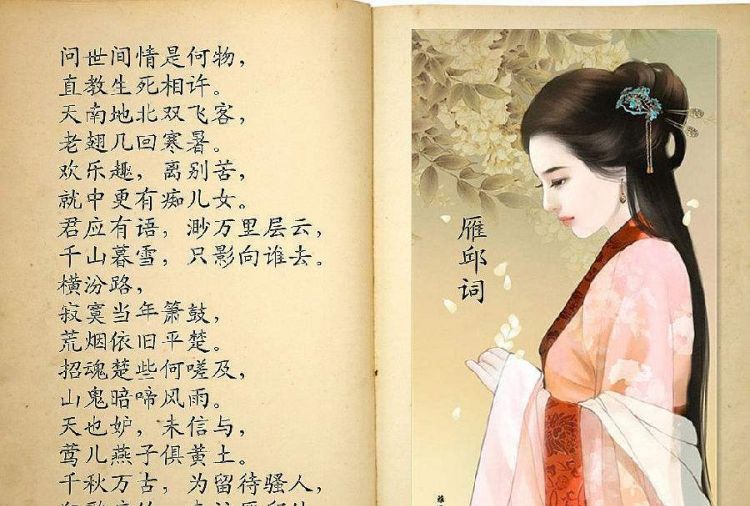 问世间情是何物，
直教生死相许。
天南地北双飞客，
老翅几回寒暑。
欢乐趣，离别苦，
就中更有痴儿女。
君应有语，渺万里层云，
千山暮雪，只影向谁去。
横汾路，
寂寞当年箫鼓，
荒烟依旧平楚。
招魂楚些何嗟及，
山鬼暗啼风雨。
天也妒，未信与，
莺儿燕子俱黄土。
千秋万古，为留待骚人，
雁邱词